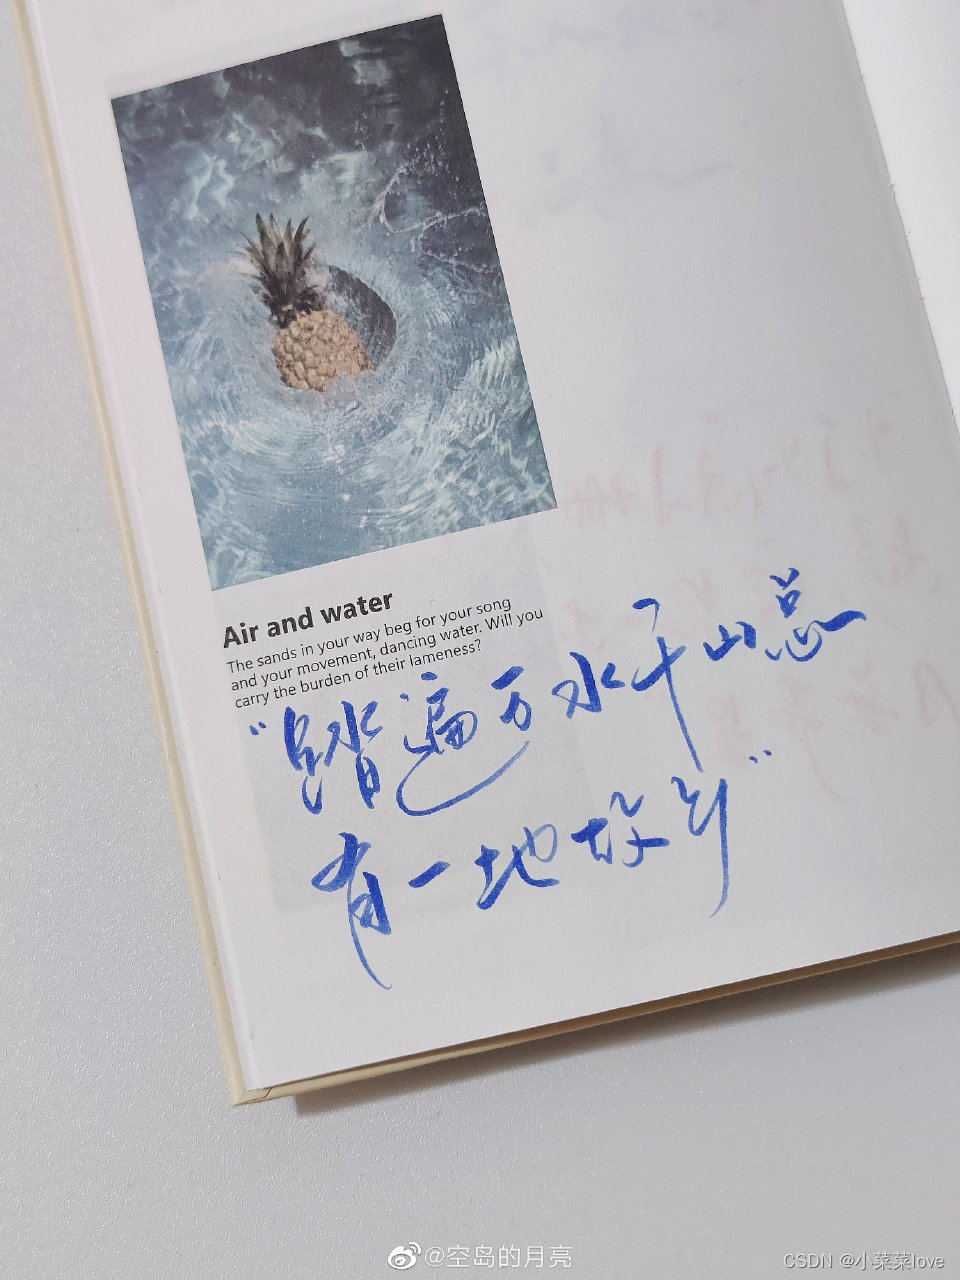 Air and water
The sands in your way beg for your song
and your movement, dancing water. Will you
carry the burden of their lameness?
“踏遍万水千山总
有一地故乡”
@空岛的月亮
CSDN @小菜菜love